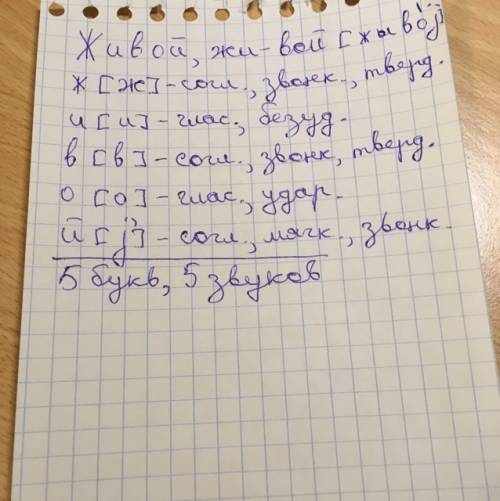 Живой, жи-вой [жывой́j']
ж [ж] - согл., звонк., тверд.
и [и] - глас., безуд.
в [в] - согл., звонк, тверд.
о [о] - глас., удар.
й [j'] - согл., мягк., звонк.
5 букв, 5 звуков